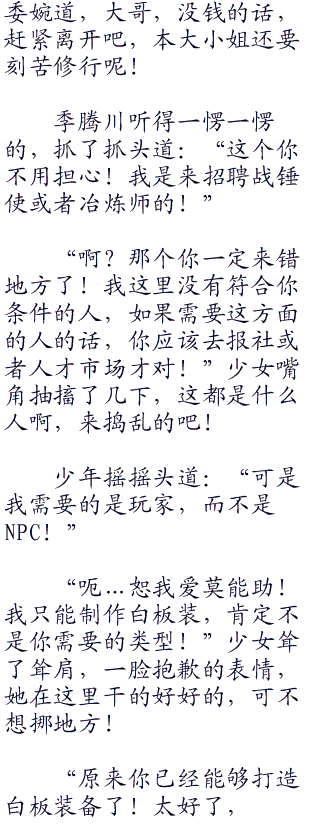 委婉道，大哥，没钱的话，
赶紧离开吧，本大小姐还要
刻苦修行呢！
季腾川听得一愣一愣
的，抓了抓头道：“这个你
不用担心！我是来招聘战锤
使或者冶炼师的！”
“啊？那个你一定来错
地方了！我这里没有符合你
条件的人，如果需要这方面
的人的话，你应该去报社或
者人才市场才对！”少女嘴
角抽搐了几下，这都是什么
人啊，来捣乱的吧！
少年摇摇头道：“可是
我需要的是玩家，而不是
NPC！”
“呃…恕我爱莫能助！
我只能制作白板装，肯定不
是你需要的类型！”少女耸
了耸肩，一脸抱歉的表情，
她在这里干的好好的，可不
想挪地方！
“原来你已经能够打造
白板装备了！太好了，